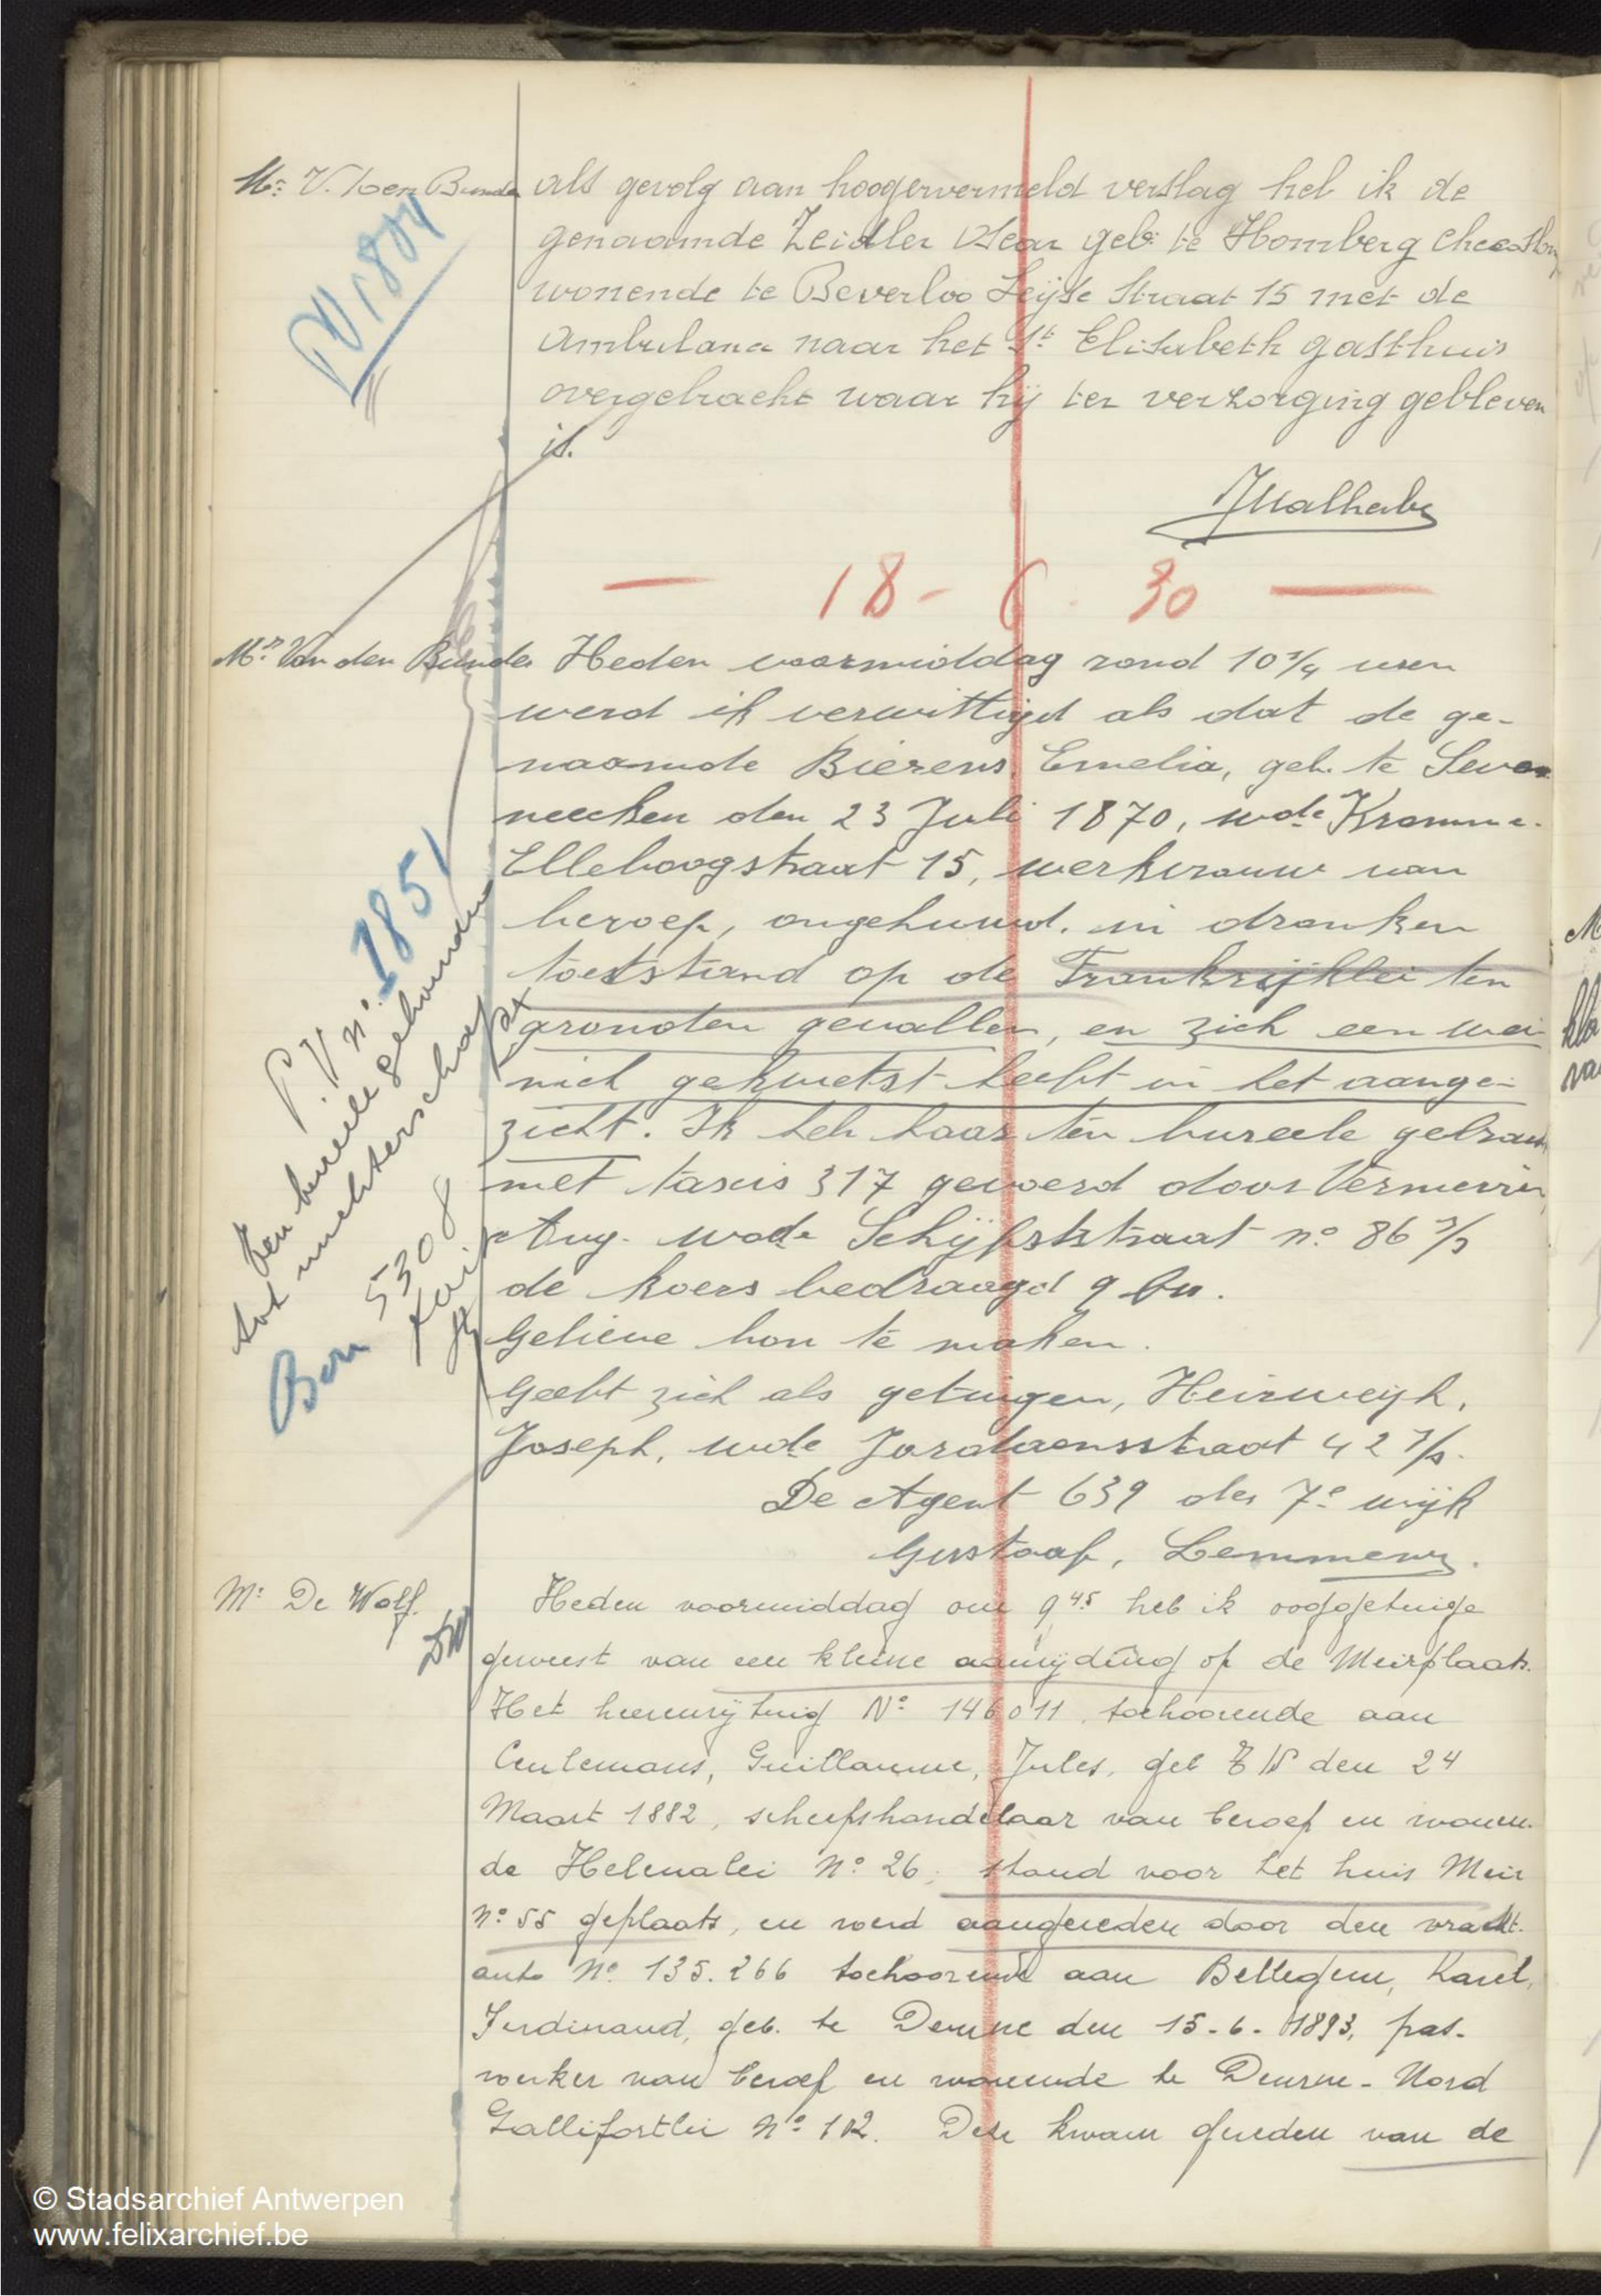 Mr V. den Bunder
PV 1804
als gevolg aan hoogervermeld verslag heb ik de
genaamde Zeidler Oscar geb. te Homberg
wonende te Beverloo Straat 15 met de
Ambulance naar het St Elisabeth gasthuis
overgebracht waar hij ter verzorging gebleven
is.
JMalherbe
— 18 - 6 - 30 —
Mr Van den Bunder
P.V nr. 1851
Ten bureele gehouden
tot nuchterschap
Bon 5308
Heden voormiddag rond 10 3/4 uren
werd ik verwittigd als dat de ge-
naamde Bierens, Emelia, geb. te
den 23 Juli 1870, wde Kromme-
Elleboogstraat 15, werkvrouw van
beroep, ongehuwd. in dronken
toetstand op de Frankrijklei ten
gronden gevallen, en zich een wei-
nich gekwetst heeft in het aange-
zicht. Ik heb haar ten bureele gebracht
met taxis 317 gevoerd door
Aug. wode Schijfstraat no 86
de koers bedraagd 9 fr.
Gelieve bon te maken.
Geeft zich als getuigen, Heirweyh,
Joseph, wde Jordaensstraat 42
De Agent 639 der 7e wijk
Gustaaf, Lemmens.
Mr De Wolf.
DW
Heden voormiddag om 9 45 heb ik ooggetuige
geweest van een kleine aanrijding op de Meirplaats.
Het heerenrijtuig No 146011, toehoorende aan
Ceulemans, Guillaume, Jules, geb den 24
Maart 1882, scheepshandelaar van beroep en wonen-
de Helenalei No 26, stond voor het huis Meir
No 55 geplaats, en werd aangereden door den vracht-
auto No 135.266 toehoorende aan Bellegem, Karel,
Ferdinand, geb. te Deurne den 15-6-1893, pas-
werker van beroep en wonende te Deurne-Nord
Gallifortlei No 102. Deze kwam gereden van de
© Stadsarchief Antwerpen
www.felixarchief.be